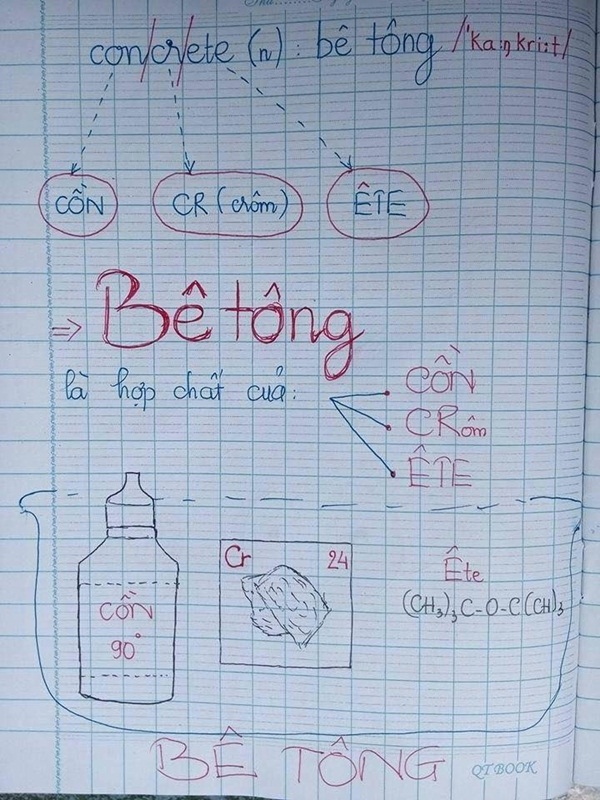 con/cr/ete (n): bê tông /'kaŋkrist/
CỒN CR (crôm) ÊTE
=> Bê tông
là hợp chất của:
CỒN
CRôm
ÊTE
Cr 24
CỒN
90°
Ête
(CH₃)₃C-O-C(CH)₃
BÊ TÔNG
QTBOOK